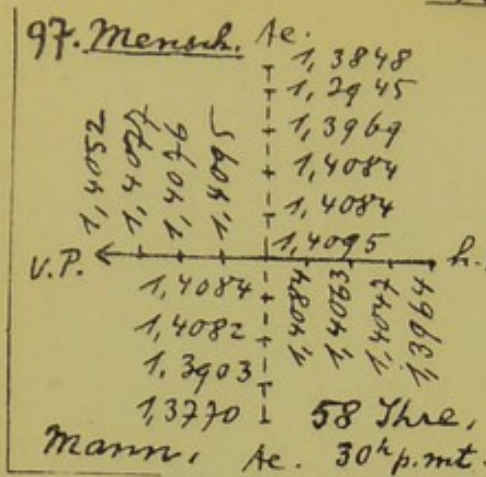 97. Mensch. Ae.
1,3848
1,3945
1,3969
1,4084
1,4084
1,4095
1,4052
1,4077
1,4096
1,4095
V.P.
h.
1,4084
1,4082
1,3903
1,3770
1,4084
1,4093
1,4047
1,3964
58 Jhre,
Mann, Ae. 30h p.mt.